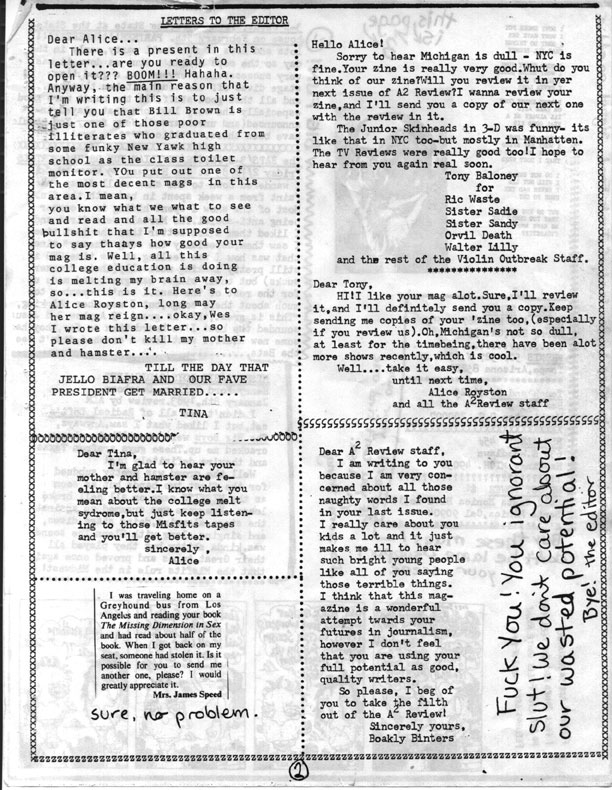 LETTERS TO THE EDITOR
Dear Alice...
There is a present in this
letter...are you ready to
open it??? BOOM!!! Hahaha.
Anyway, the main reason that
I'm writing this is to just
tell you that Bill Brown is
just one of those poor
illiterates who graduated from
some funky New Yawk high
school as the class toilet
monitor. YOu put out one of
the most decent mags in this
area.I mean,
you know what we what to see
and read and all the good
bullshit that I'm supposed
to say thanys how good your
mag is. Well, all this
college education is doing
is melting my brain away,
so...this is it. Here's to
Alice Royston, long may
her mag reign....okay,Wes
I wrote this letter...so
please don't kill my mother
and hamster...
TILL THE DAY THAT
JELLO BIAFRA AND OUR FAVE
PRESIDENT GET MARRIED.....
TINA
Dear Tina,
I'm glad to hear your
mother and hamster are fe-
eling better.I know what you
mean about the college melt
sydrome,but just keep listen-
ing to those Misfits tapes
and you'll get better.
sincerely ,
Alice
I was traveling home on a
Greyhound bus from Los
Angelus and reading your book
The Missing Dimension in Sex
and had read about half of the
book. When I got back on my
seat, someone had stolen it. Is it
possible for you to send me
another one, please? I would
greatly appreciate it.
Mrs. James Speed
sure, no problem.
Hello Alice!
Sorry to hear Michigan is dull - NYC is
fine.Your zine is really very good.Whut do you
think of our zine?Will you review it in yer
next issue of A2 Review?I wanna review your
zine,and I'll send you a copy of our next one
with the review in it.
The Junior Skinheads in 3-D was funny- its
like that in NYC too-but mostly in Manhatten.
The TV Reviews were really good too!I hope to
hear from you again real soon.
Tony Baloney
for
Ric Waste
Sister Sadie
Sister Sandy
Orvil Death
Walter Lilly
and the rest of the Violin Outbreak Staff.
***************
Dear Tony,
HI!I like your mag alot.Sure,I'll review
it,and I'll definitely send you a copy.Keep
sending me copies of your 'zine too,(especially
if you review us).Oh,Michigan's not so dull,
at least for the timebeing,there have been alot
more shows recently,which is cool.
Well....take it easy,
until next time,
Alice Royston
and all the A2Review staff
Dear A2 Review staff,
I am writing to you
because I am very con-
cerned about all those
naughty words I found
in your last issue.
I really care about you
kids a lot and it just
makes me ill to hear
such bright young people
like all of you saying
those terrible things.
I think that this mag-
azine is a wonderful
attempt twards your
futures in journalism,
however I don't feel
that you are using your
full potential as good,
quality writers.
So please, I beg of
you to take the filth
out of the A2 Review!
Sincerely yours,
Boakly Binters
Fuck You! You ignorant
slut! We don't care about
our wasted potential!
Bye! the editor
2